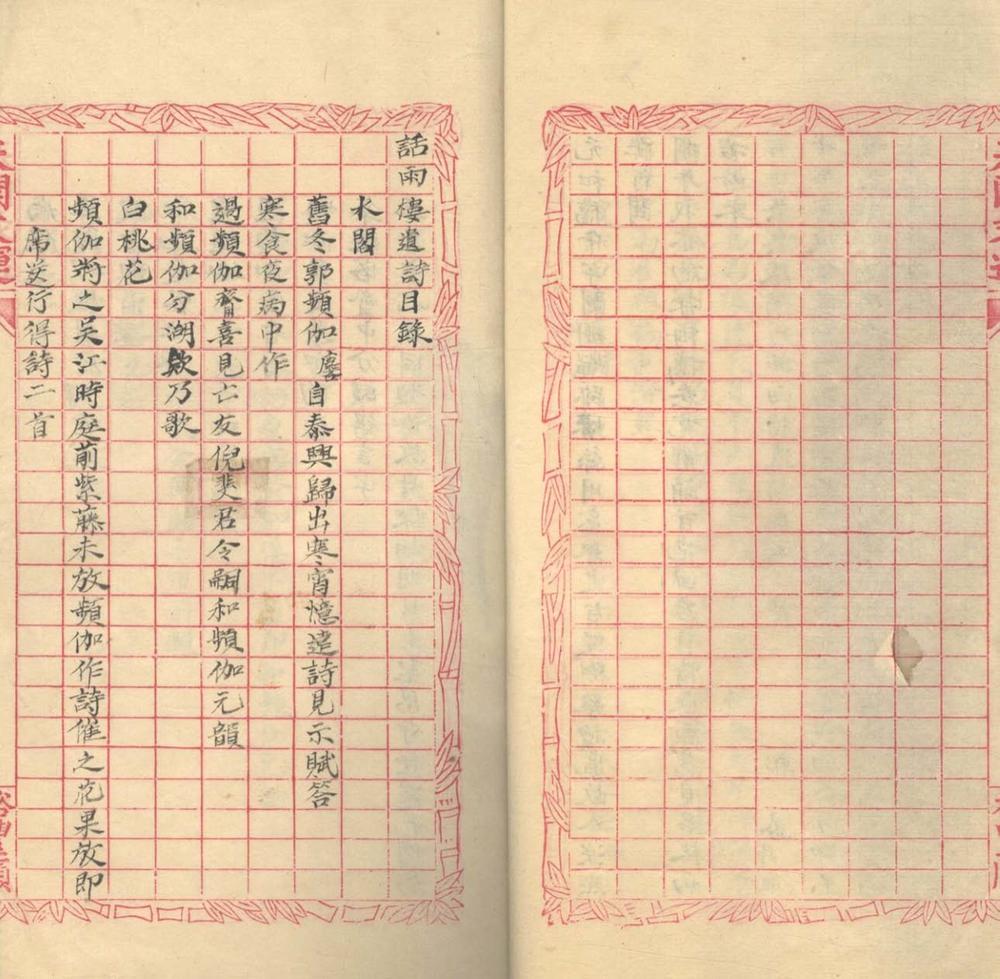 話雨樓遺詩目錄
水閣
舊冬郭頻伽麐自泰興歸出寒宵憶遠詩見示賦答
寒食夜病中作
過頻伽齋喜見亡友倪斐君令嗣和頻伽元韻
和頻伽分湖欸乃歌
白桃花
頻伽將之吳江時庭前紫藤未放頻伽作詩催之花果放即
席送行得詩二首